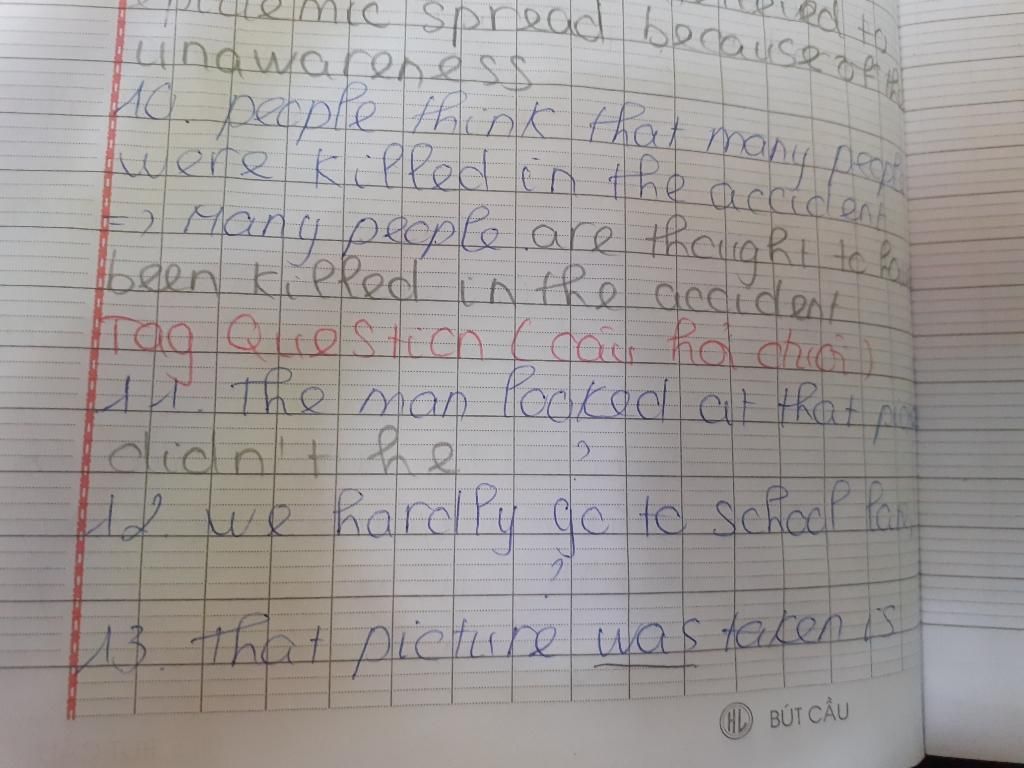 spread because of the
unawareness
10. people think that many
were killed in the accident
=> Many people are thought to
been killed in the accident
Tag Question (câu hỏi đuôi)
11. The man looked at that
didn't he ?
12. we hardly go to school
?
13. that picture was taken is
HL BÚT CẦU